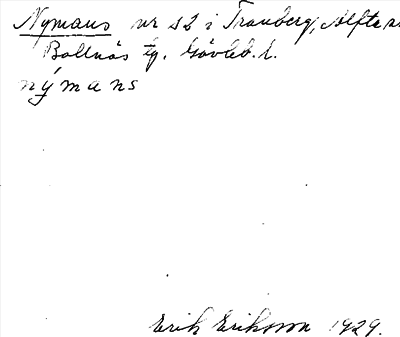 Nymans nr 12 i Tranberg, Alfta s
Bollnäs tg. Gävleb. l.
nýmans
Erik Eriksson 1929.